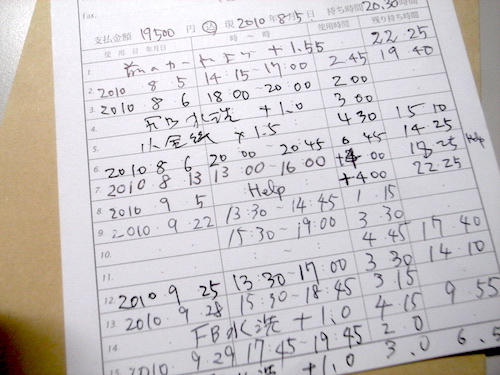 Fax.
支払金額 19500 円 込 現 2010年8月5日 持ち時間 20.30時間
使用日 年月日 時 ~ 時 使用時間 残り持ち時間
1. 前のカードより +1.55 22 25
2. 2010 8 5 14:15~17:00 2 45 19 40
3. 2010 8 6 18:00~20:00 2 00
4. FB水洗 +1.0 3 00
5. 小全紙 ×1.5 4 30 15 10
6. 2010 8 6 20:00~20:45 0 45 14 25
7. 2010 8 13 13:00~16:00 +4 00 18 25 Help
8. 2010 9 5 Help +4 00 22 25
9. 2010 9 22 13:30~14:45 1 15
10. 15:30~19:00 3 30
11. 4 45 17 40
12. 2010 9 25 13:30~17:00 3 30 14 10
13. 2010 9 28 15:30~18:45 3 15
14. FB水洗 +1.0 4 15 9 55
15. 2010 9 29 17:45~19:45 2 0
水洗 +1.0 3 0 6